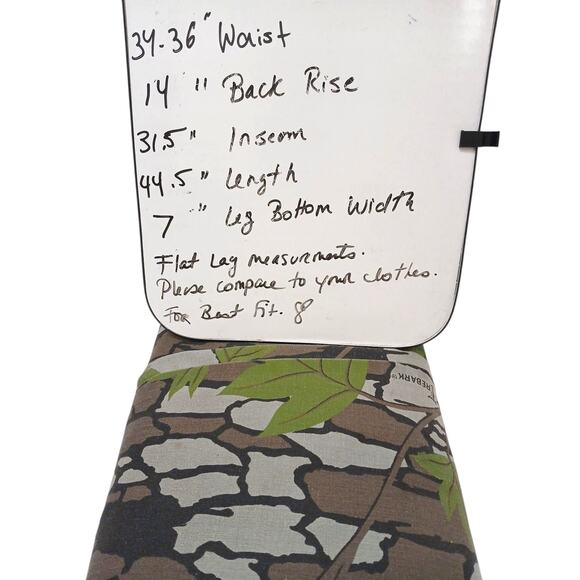 34-36" Waist
14 " Back Rise
31.5" Inseam
44.5" Length
7 " Leg Bottom Width
Flat Lay measurments.
Please compare to your clothes.
For Best Fit.
TREBARK